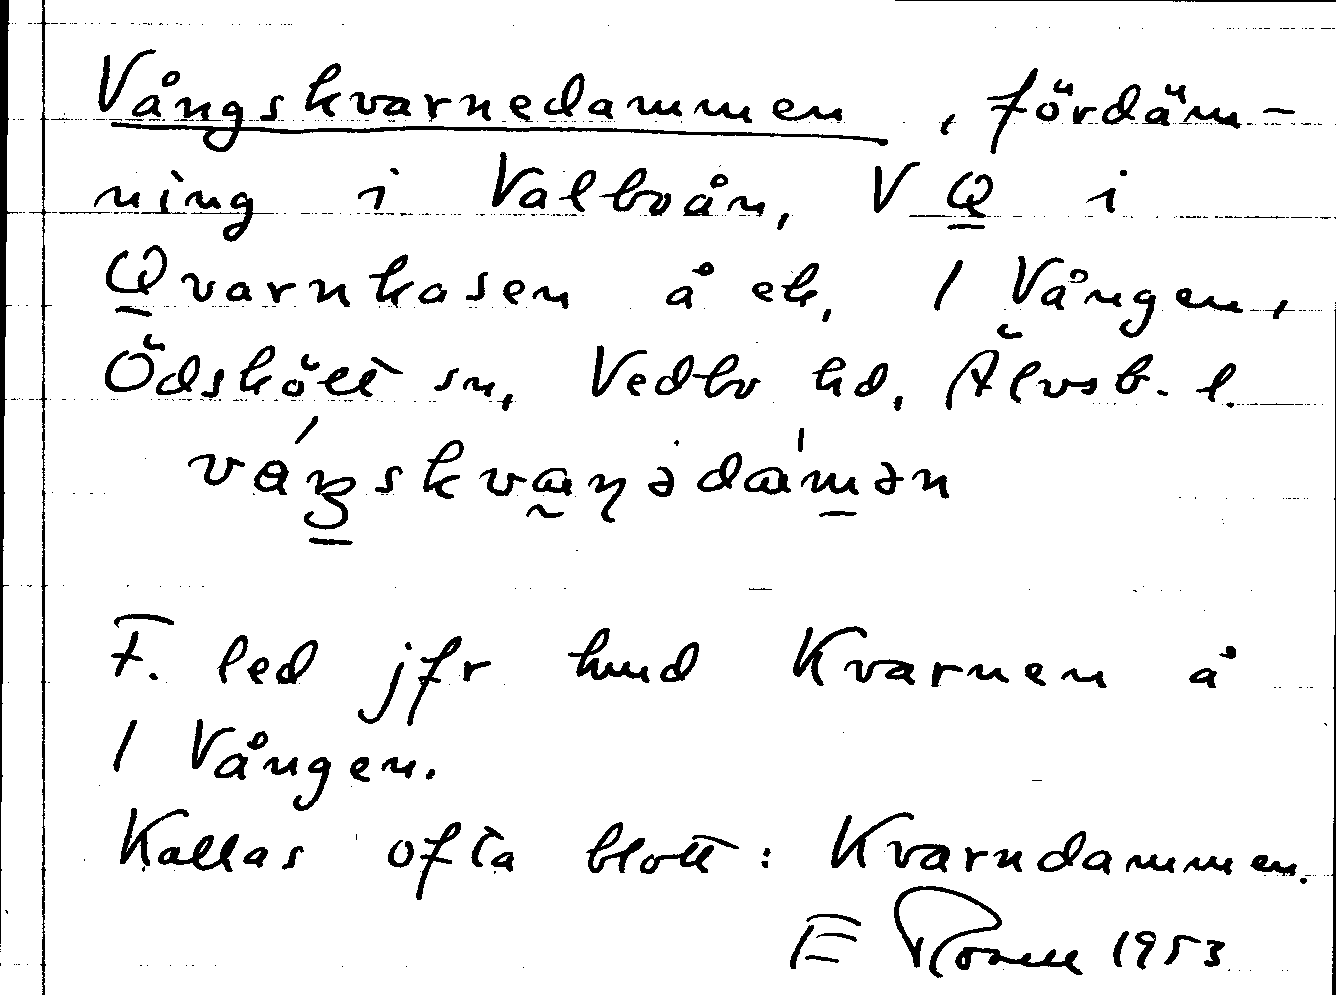 Vångskvarnedammen, fördäm-
ning i Valboån, V Q i
Qvarnkasen å ek. 1 Vången,
Ödskölt sn, Vedbo hd, Älvsb. l.
F. led jfr hmd Kvarnen å
1 Vången.
Kallas ofta blott: Kvarndammen.
E 1953